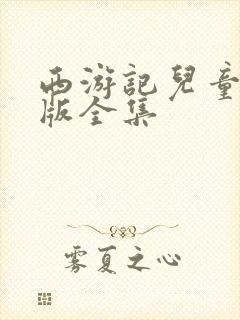 西游記兒童
版全集
雾夏之心